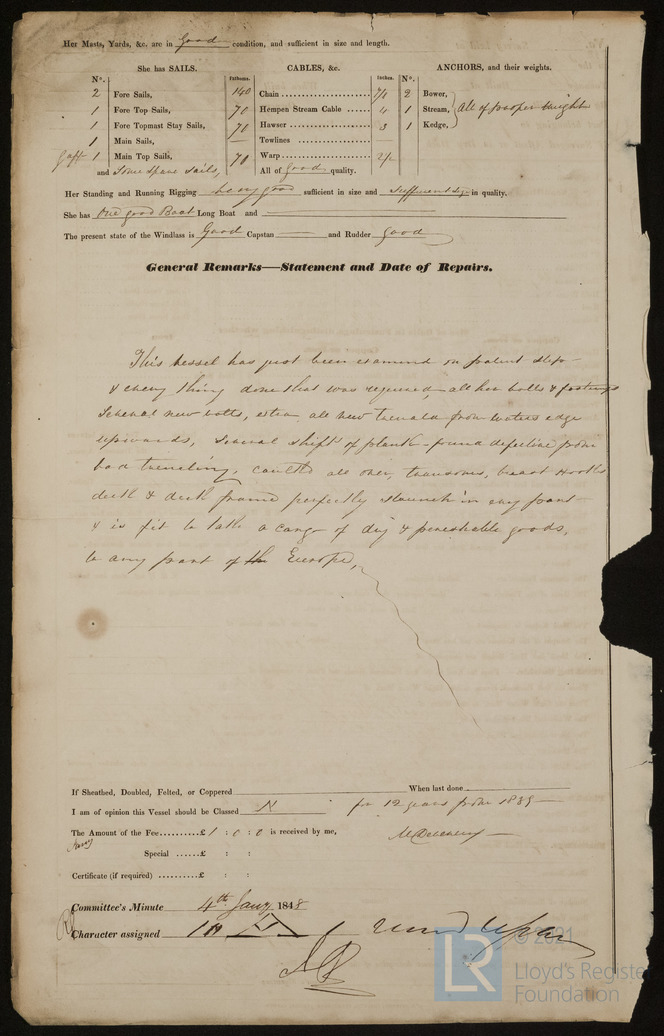 Her Masts, Yards, &c. are in Good condition, and sufficient in size and length.
She has SAILS. CABLES, &c. ANCHORS, and their weights.
Nº. Fathoms. Inches. Nº.
2 Fore Sails, 140 Chain 2 Bower,
1 Fore Top Sails, 70 Hempen Stream Cable 4 1 Stream, All of proper weight
1 Fore Topmast Stay Sails, 70 Hawser 3 1 Kedge,
1 Main Sails, — Towlines
Gaff 1 Main Top Sails, 70 Warp
and Some spare sails, All of good quality.
Her Standing and Running Rigging very good sufficient in size and in quality.
She has One good Boat Long Boat and
The present state of the Windlass is Good Capstan — and Rudder good
General Remarks—Statement and Date of Repairs.
This vessel has just been on patent slip
& every thing done that was required, all her bolts & fastings
Several new bolts, all new from waters edge
upwards, Several shifts of plank found defective from
bad all over, transoms, breast Hooks
deck & deck frame perfectly staunch in any part
& is fit to take a cargo of dry & perishable goods,
to any part of Europe,
If Sheathed, Doubled, Felted, or Coppered When last done
I am of opinion this Vessel should be Classed for 12 years from 1839
The Amount of the Fee..........£ 1 : 0 : 0 is received by me,
Special ......£ : :
Certificate (if required) ..........£ : :
Committee's Minute 4th Jany 1848
Character assigned
LR
© 2021
Lloyd's Register
Foundation